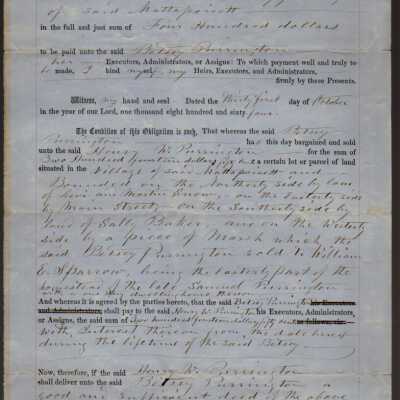 of said Mattapoisett
in the full and just sum of Four Hundred dollars
to be paid unto the said Betsey Purrington
her Executors, Administrators, or Assigns: To which payment well and truly to
be made, I bind myself my Heirs, Executors, and Administrators,
firmly by these Presents.
Witness, my hand and seal Dated the Thirty first day of October
in the year of our Lord, one thousand eight hundred and sixty four.
The Condition of this Obligation is such, That whereas the said Betsey
Purrington has this day bargained and sold
unto the said Henry W. Purrington for the sum of
Two Hundred fourteen dollars fifty cts a certain lot or parcel of land
situated in the Village of said Mattapoisett and
Bounded on the Northerly side by land
of Levi and Martin on the Easterly side
by Main Street, on the Southerly side by
land of Sally Baker, and on the Westerly
side by a piece of Marsh which the
said Betsey Purrington sold to William
E. Sparrow, being the Easterly part of the
homestead of the late Samuel Purrington
with one dwelling house thereon
And whereas it is agreed by the parties hereto, that the said Betsey Purrington his Executors
and Administrators, shall pay to the said Henry W. Purrington his Executors, Administrators,
or Assigns, the said sum of Two hundred fourteen dollars fifty cents as follows, viz.
with Interest thereon from the date hereof
during the lifetime of the said Betsey
Now, therefore, if the said Henry W. Purrington
shall deliver unto the said Betsey Purrington a
good and sufficient deed of the above